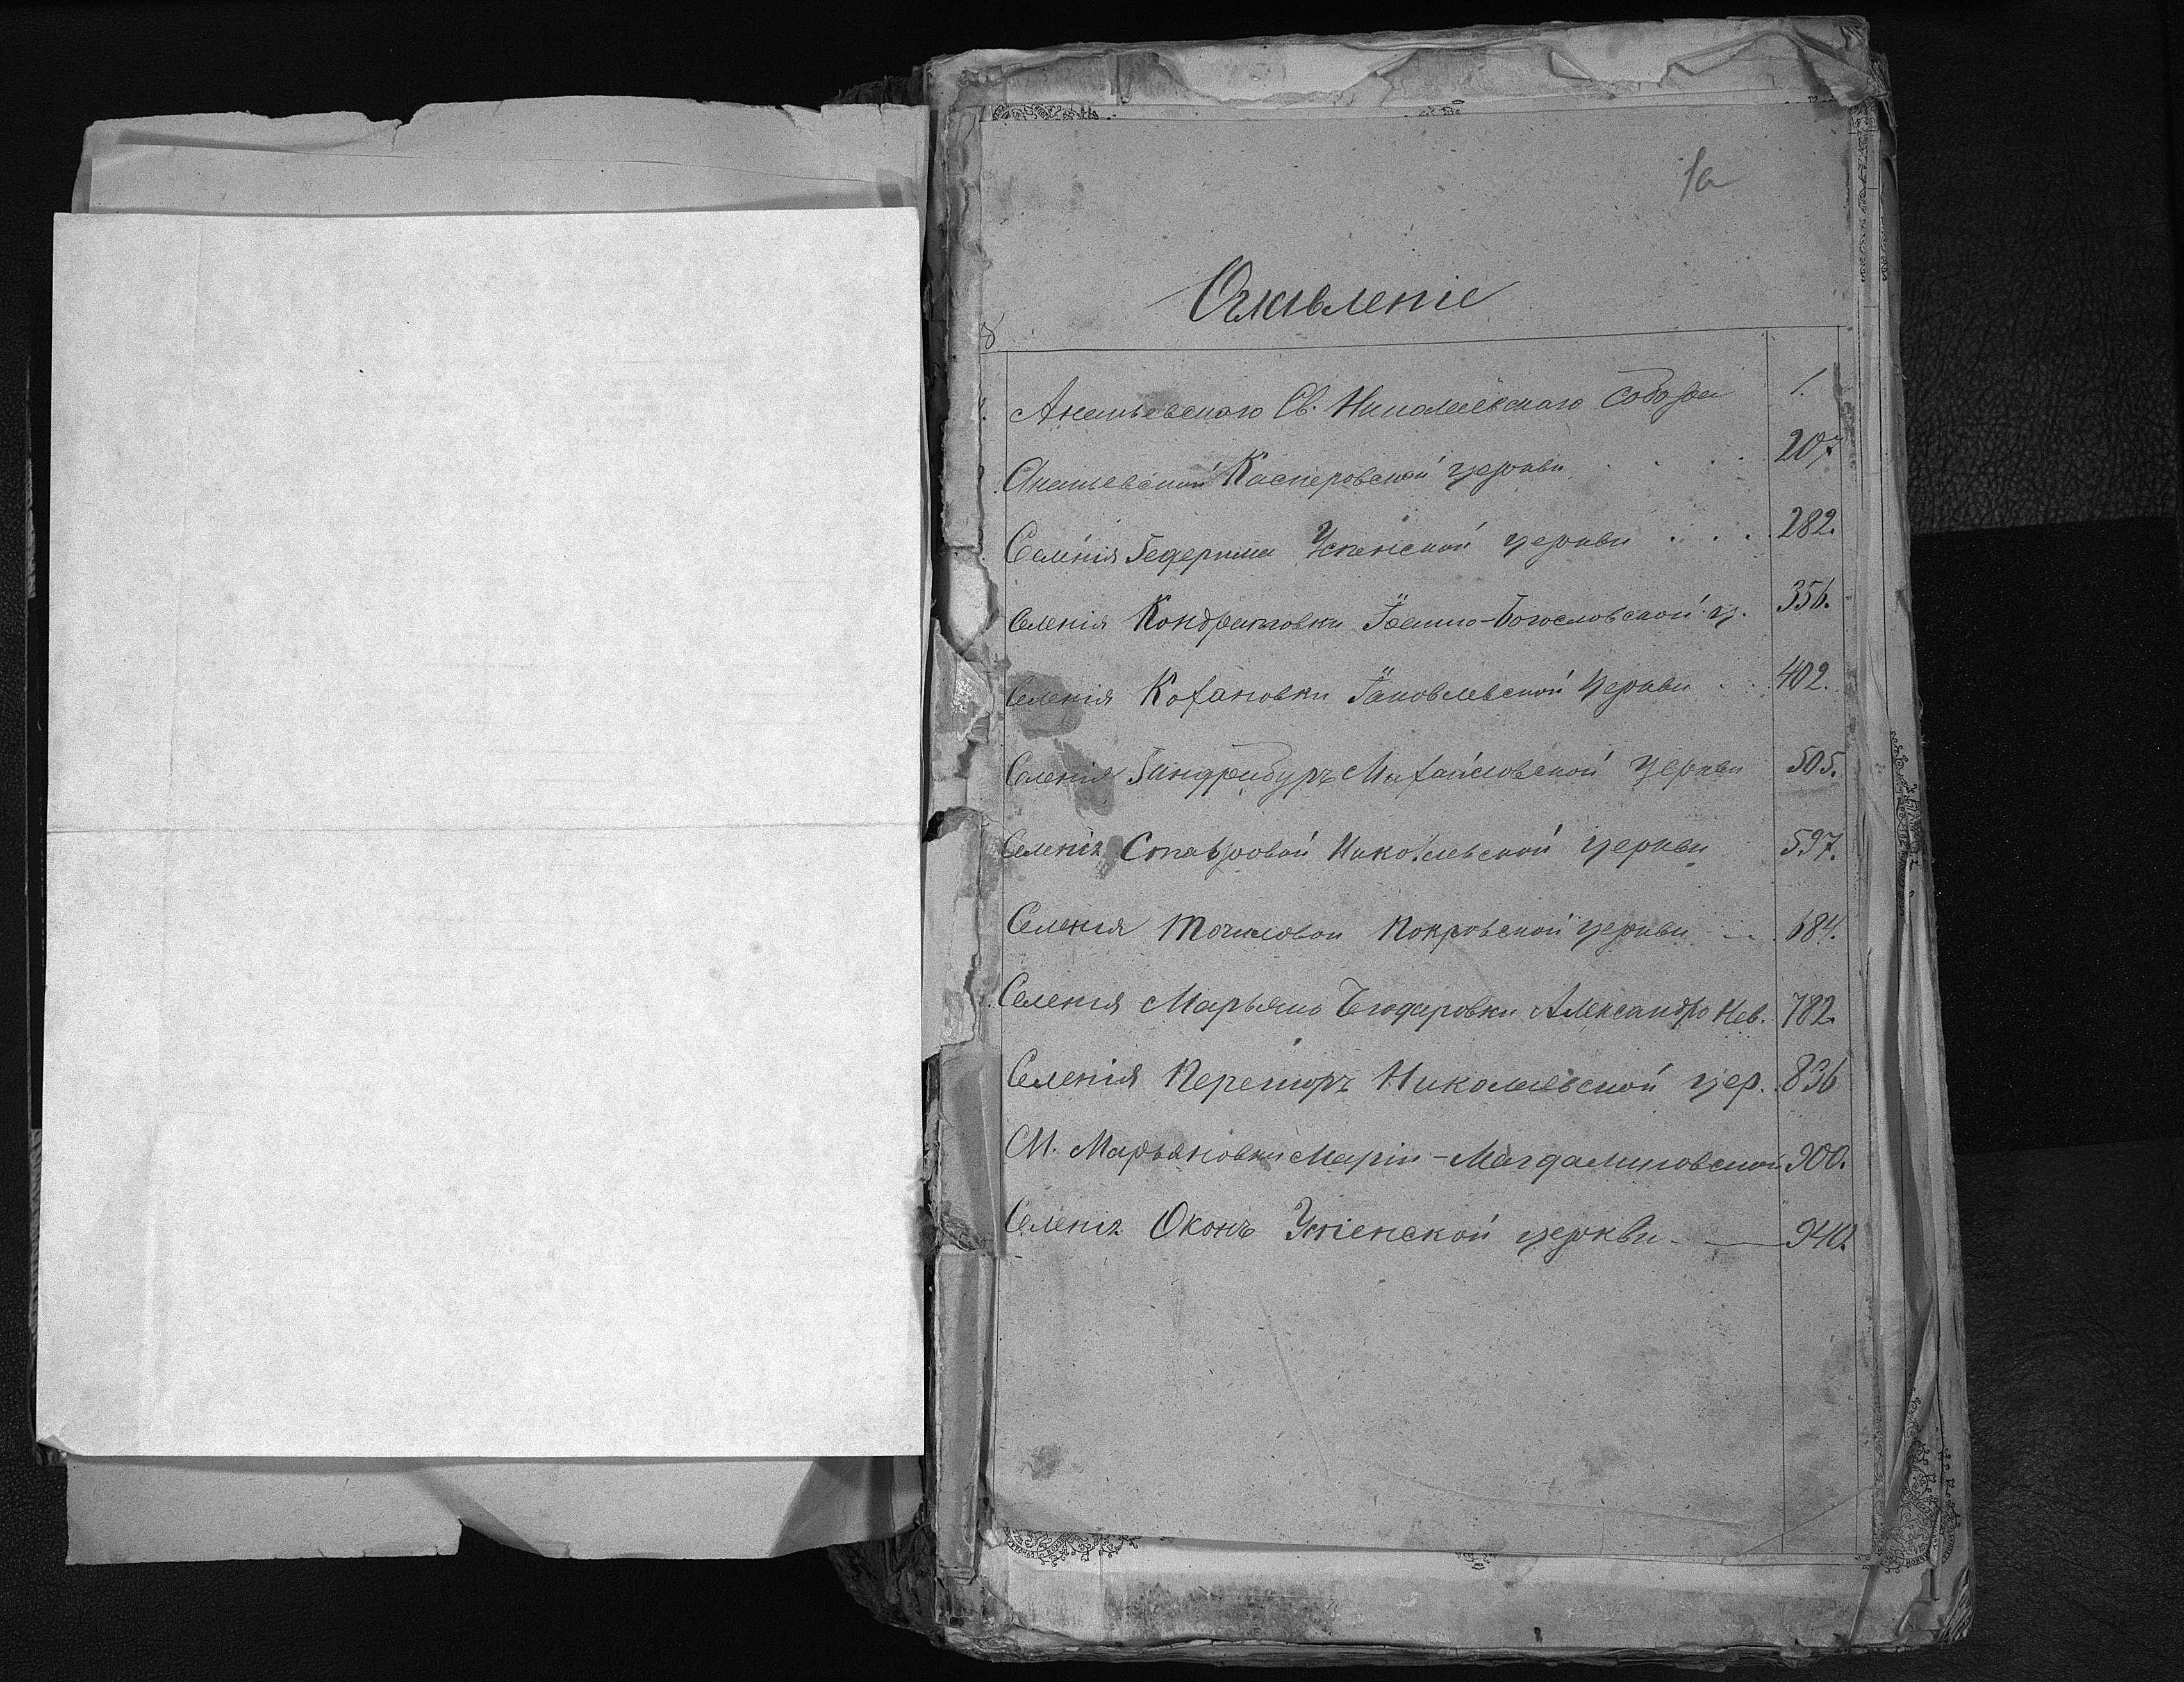 1а
Оглавленіе
Ананьевскаго Св. Николаевскаго Собора 1.
Ананьевской Касперовской церкви . . . . 207
Селенія Гедерима Успенской церкви . . . . 282.
Селенія Кондратовки Іоанно-Богословской ц. 356.
Селенія Кохановки Іаковлевской Церкви . . . 402.
Селенія Гандрабуръ Михайловской Церкви 505.
Селенія Ставровой Николаевской церкви 597.
Селенія Точиловой Покровской церкви 684.
Селенія Марьяно Чегодаровки Александро Нев. 782.
Селенія Перешоръ Николаевской цер. 836
М. Марьяновки Маріи-Магдалиновской 900.
Селенія Оконъ Успенской церкви. 940.